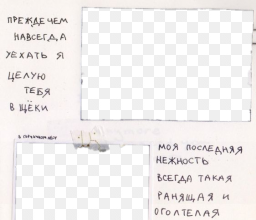 ПРЕЖДЕ ЧЕМ
НАВСЕГДА
УЕХАТЬ Я
ЦЕЛУЮ
ТЕБЯ
В ЩЁКИ
МОЯ ПОСЛЕДНЯЯ
НЕЖНОСТЬ
ВСЕГДА ТАКАЯ
РАНЯЩАЯ И
ОГОЛТЕЛАЯ